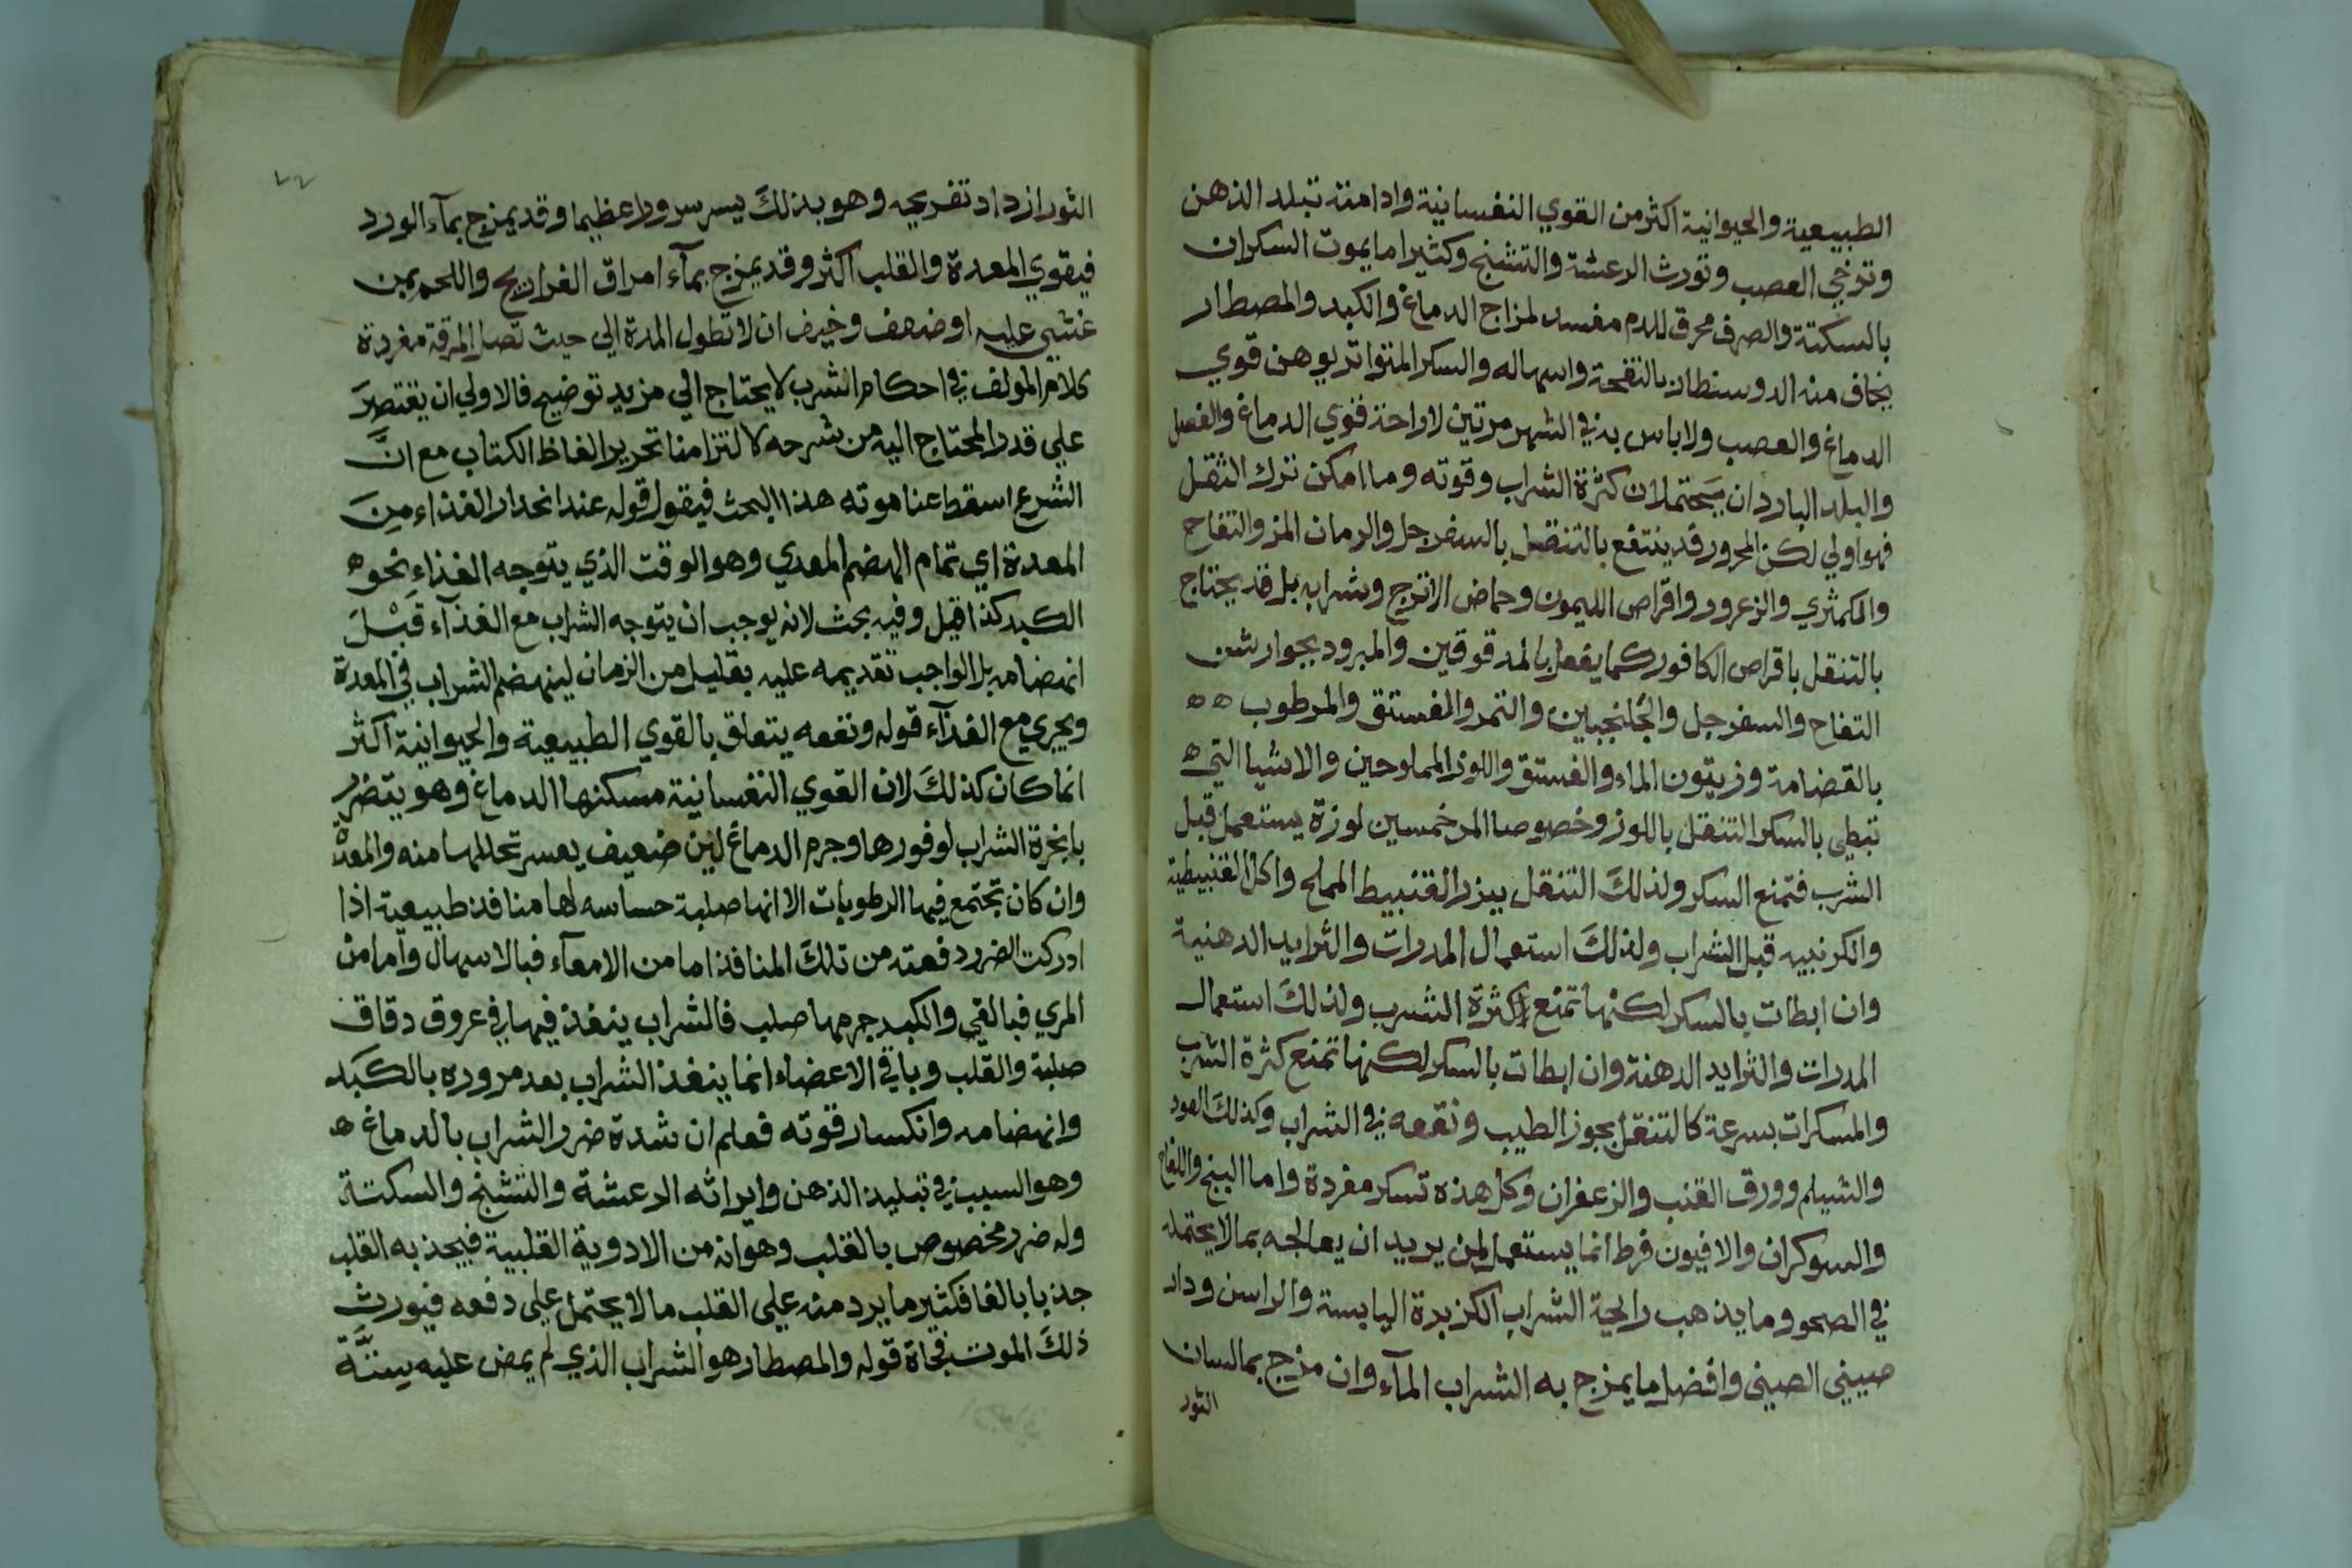 الطبيعية والحيوانية اكثر من القوي النفسانية وادامته تبلد الذهن
وترخي العصب وتورث الرعشة والتشنج وكثيرا ما يموت السكران
بالسكتة والصرف محرق للدم مفسد لمزاج الدماغ والكبد والمصطار
يخاف منه الدوسنطار بالنفحة واسهاله والسكر المتواتر يوهن قوي
الدماغ والعصب ولا باس به في الشهر مرتين لاراحة قوي الدماغ والفصل
والبلد الباردان يحتملان كثرة الشراب وقوته وما امكن ترك التنقل
فهو اولي لكن المحرور قد ينتفع بالتنقل بالسفرجل والرمان المز والتفاح
والكمثري والزعرور واقراص الليمون وحماض الاترج وشرابه بل قد يحتاج
بالتنقل باقراص الكافور كما يفعل بالمدقوقين والمبرود بجوارشن
التفاح والسفرجل والجلنجبين والتمر والفستق والمرطوب ه ه
بالقضامة وزيتون الماء والفستق واللوز المملوحين والاشيا التي ه
تبطي بالسكر التنقل باللوز وخصوصا المر خمسين لوزة يستعمل قبل
الشرب فتمنع السكر ولذلك التنقل ببزر القنبيط المملح واكل القنبيطية
والكرنبيه قبل الشراب ولذلك استعمال المدرات والثرايد الدهنية
وان ابطات بالسكر لكنها تمنع كثرة الشرب ولذلك استعمال
المدرات والثرايد الدهنة وان ابطات بالسكر لكنها تمنع كثرة الشرب
والمسكرات بسرعة كالتنقل بجوز الطيب ونقعه في الشراب وكذلك العود
والشيلم وورق القنب والزعفران وكل هذه تسكر مفردة واما البنج واللفاح
والسوكران والافيون فرط انما يستعمل لمن يريد ان يعالجه بما لا يحتمله
في الصحو وما يذهب رايحة الشراب الكزبرة اليابسة والراسن ودار
صيني الصيني وافضل ما يمزج به الشراب المآء وان مزج بمالسان
الثور
٧٢
الثور ازداد تفريحه وهو بذلك يسر سرورا عظيما وقد يمزج بمآء الورد
فيقوي المعدة والقلب اكثر وقد يمزج بمآء امراق الفراريح واللحم لمن
غشي عليه او ضعف وخيف ان لا تطول المدة الي حيث تصل المرقة مفردة
كلام المولف في احكام الشرب لا يحتاج الي مزيد توضيح فالاولي ان يقتصر
علي قدر المحتاج اليه من شرحه لالتزامنا تحرير الفاظ الكتاب مع ان
الشرع اسقط عنا موته هذا البحث فيقول قوله عند انحدار الغذاء من
المعدة اي تمام الهضم المعدي وهو الوقت الذي يتوجه الغذاء نحو ه
الكبد كذا قيل وفيه بحث لانه يوجب ان يتوجه الشراب مع الغذآء قبل
انهضامه بل الواجب تقديمه عليه بقليل من الزمان لينهضم الشراب في المعدة
ويجري مع الغذآء قوله ونفعه يتعلق بالقوي الطبيعية والحيوانية اكثر
انما كان كذلك لان القوي النفسانية مسكنها الدماغ وهو يتضرر
بابخرة الشراب لوفورها وجرم الدماغ لين ضعيف يعسر تحللها منه والمعدة
وان كان تجتمع فيها الرطوبات الا انها صلبة حساسه لها منافذ طبيعية اذا
ادركت الضرر دفعته من تلك المنافذ اما من الامعآء فبالاسهال واما من
المري فبالقي والكبد جرمها صلب فالشراب ينفذ فيها في عروق دقاق
صلبة والقلب وباقي الاعضاء انما ينفذ الشراب بعد مروره بالكبد
وانهضامه وانكسار قوته فعلم ان شدة ضرر الشراب بالدماغ ه
وهو السبب في تبليد الذهن وايراثه الرعشة والتشنج والسكتة
وله ضرر مخصوص بالقلب وهو انه من الادوية القلبية فيجذبه القلب
جذبا بالغا فكثير ما يرد منه علي القلب ما لا يحتمل علي دفعه فيورث
ذلك الموت فجاة قوله والمصطار هو الشراب الذي لم يمض عليه سنة